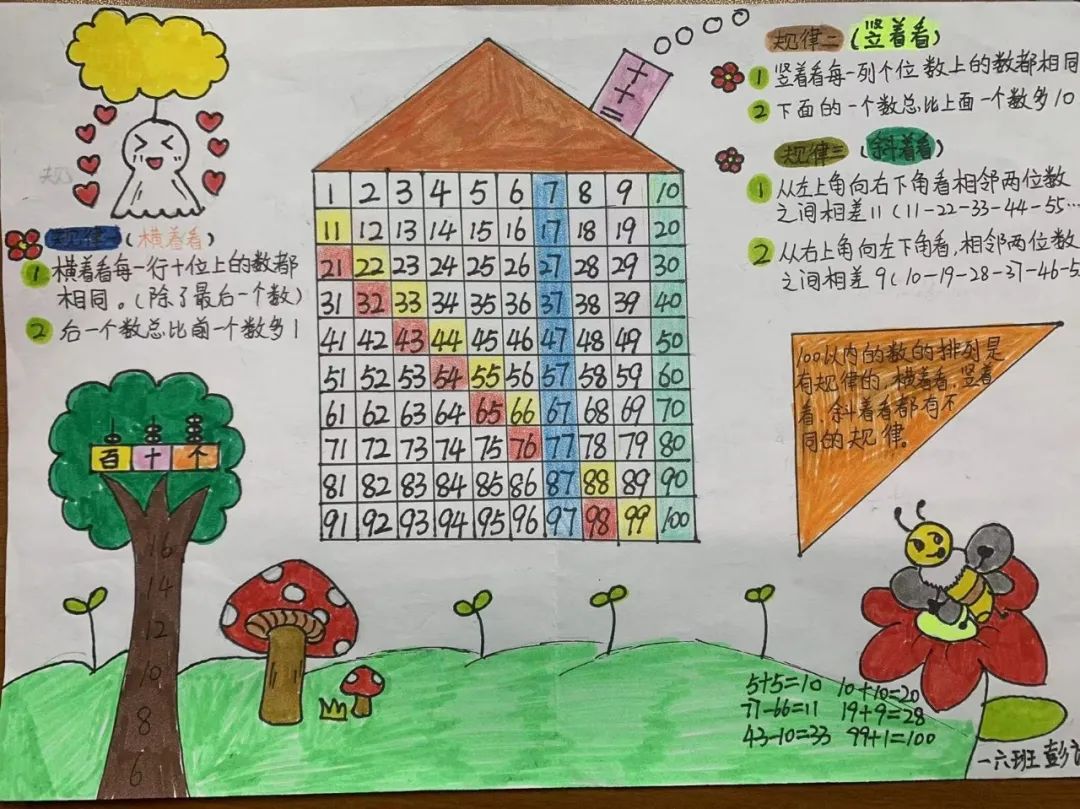 规律一(横着看)
1 横着看每一行十位上的数都
相同。(除了最后一个数)
2 后一个数总比前一个数多1
百 十 个
16
14
12
10
8
6
十
十
=
1 2 3 4 5 6 7 8 9 10
11 12 13 14 15 16 17 18 19 20
21 22 23 24 25 26 27 28 29 30
31 32 33 34 35 36 37 38 39 40
41 42 43 44 45 46 47 48 49 50
51 52 53 54 55 56 57 58 59 60
61 62 63 64 65 66 67 68 69 70
71 72 73 74 75 76 77 78 79 80
81 82 83 84 85 86 87 88 89 90
91 92 93 94 95 96 97 98 99 100
规律二(竖着看)
1 竖着看每一列个位数上的数都相同
2 下面的一个数总比上面一个数多10
规律三(斜着看)
1 从左上角向右下角看相邻两位数
之间相差11(11-22-33-44-55…
2 从右上角向左下角看,相邻两位数
之间相差9(10-19-28-37-46-5
100以内的数的排列是
有规律的,横着看,竖着
看,斜着看都有不
同的规律。
5+5=10 10+10=20
77-66=11 19+9=28
43-10=33 99+1=100
一六班 彭